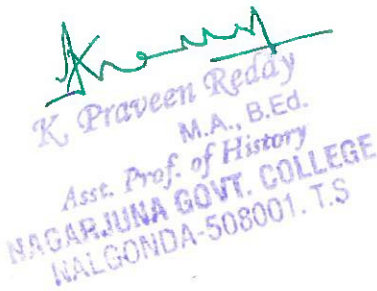 K. Praveen Reddy
M.A., B.Ed.
Asst. Prof. of History
NAGARJUNA GOVT. COLLEGE
NALGONDA-508001. T.S